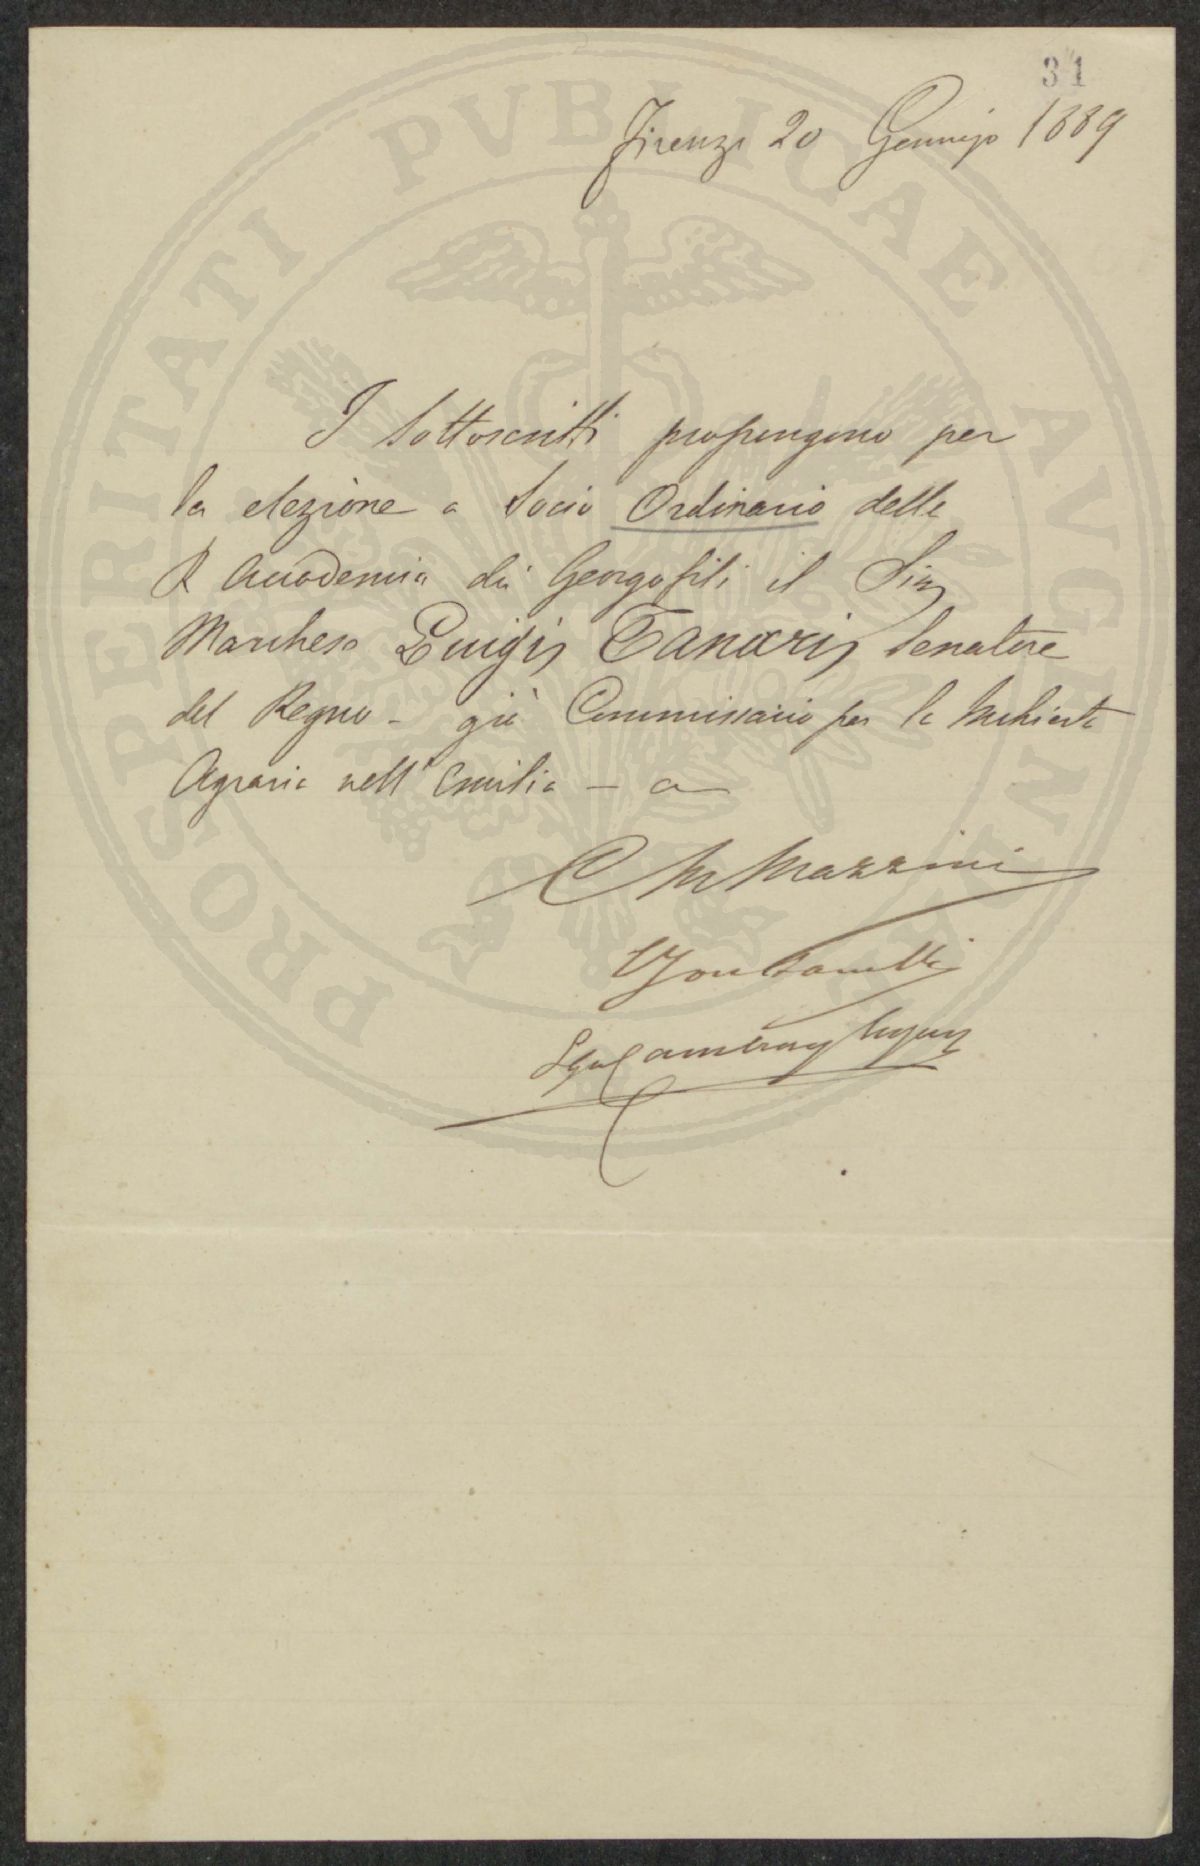 31
Firenze 20 Gennajo 1889
PROSPERITATI PVBLICAE AVGENDAE
I Sottoscritti propongono per
la elezione a Socio Ordinario della
R Accademia dei Georgofili il Sig
Marchese Luigi Tanari Senatore
del Regno - già Commissario per la Inchiesta
Agraria nell' Emilia - a
C M Mazzini
Cambray Digny